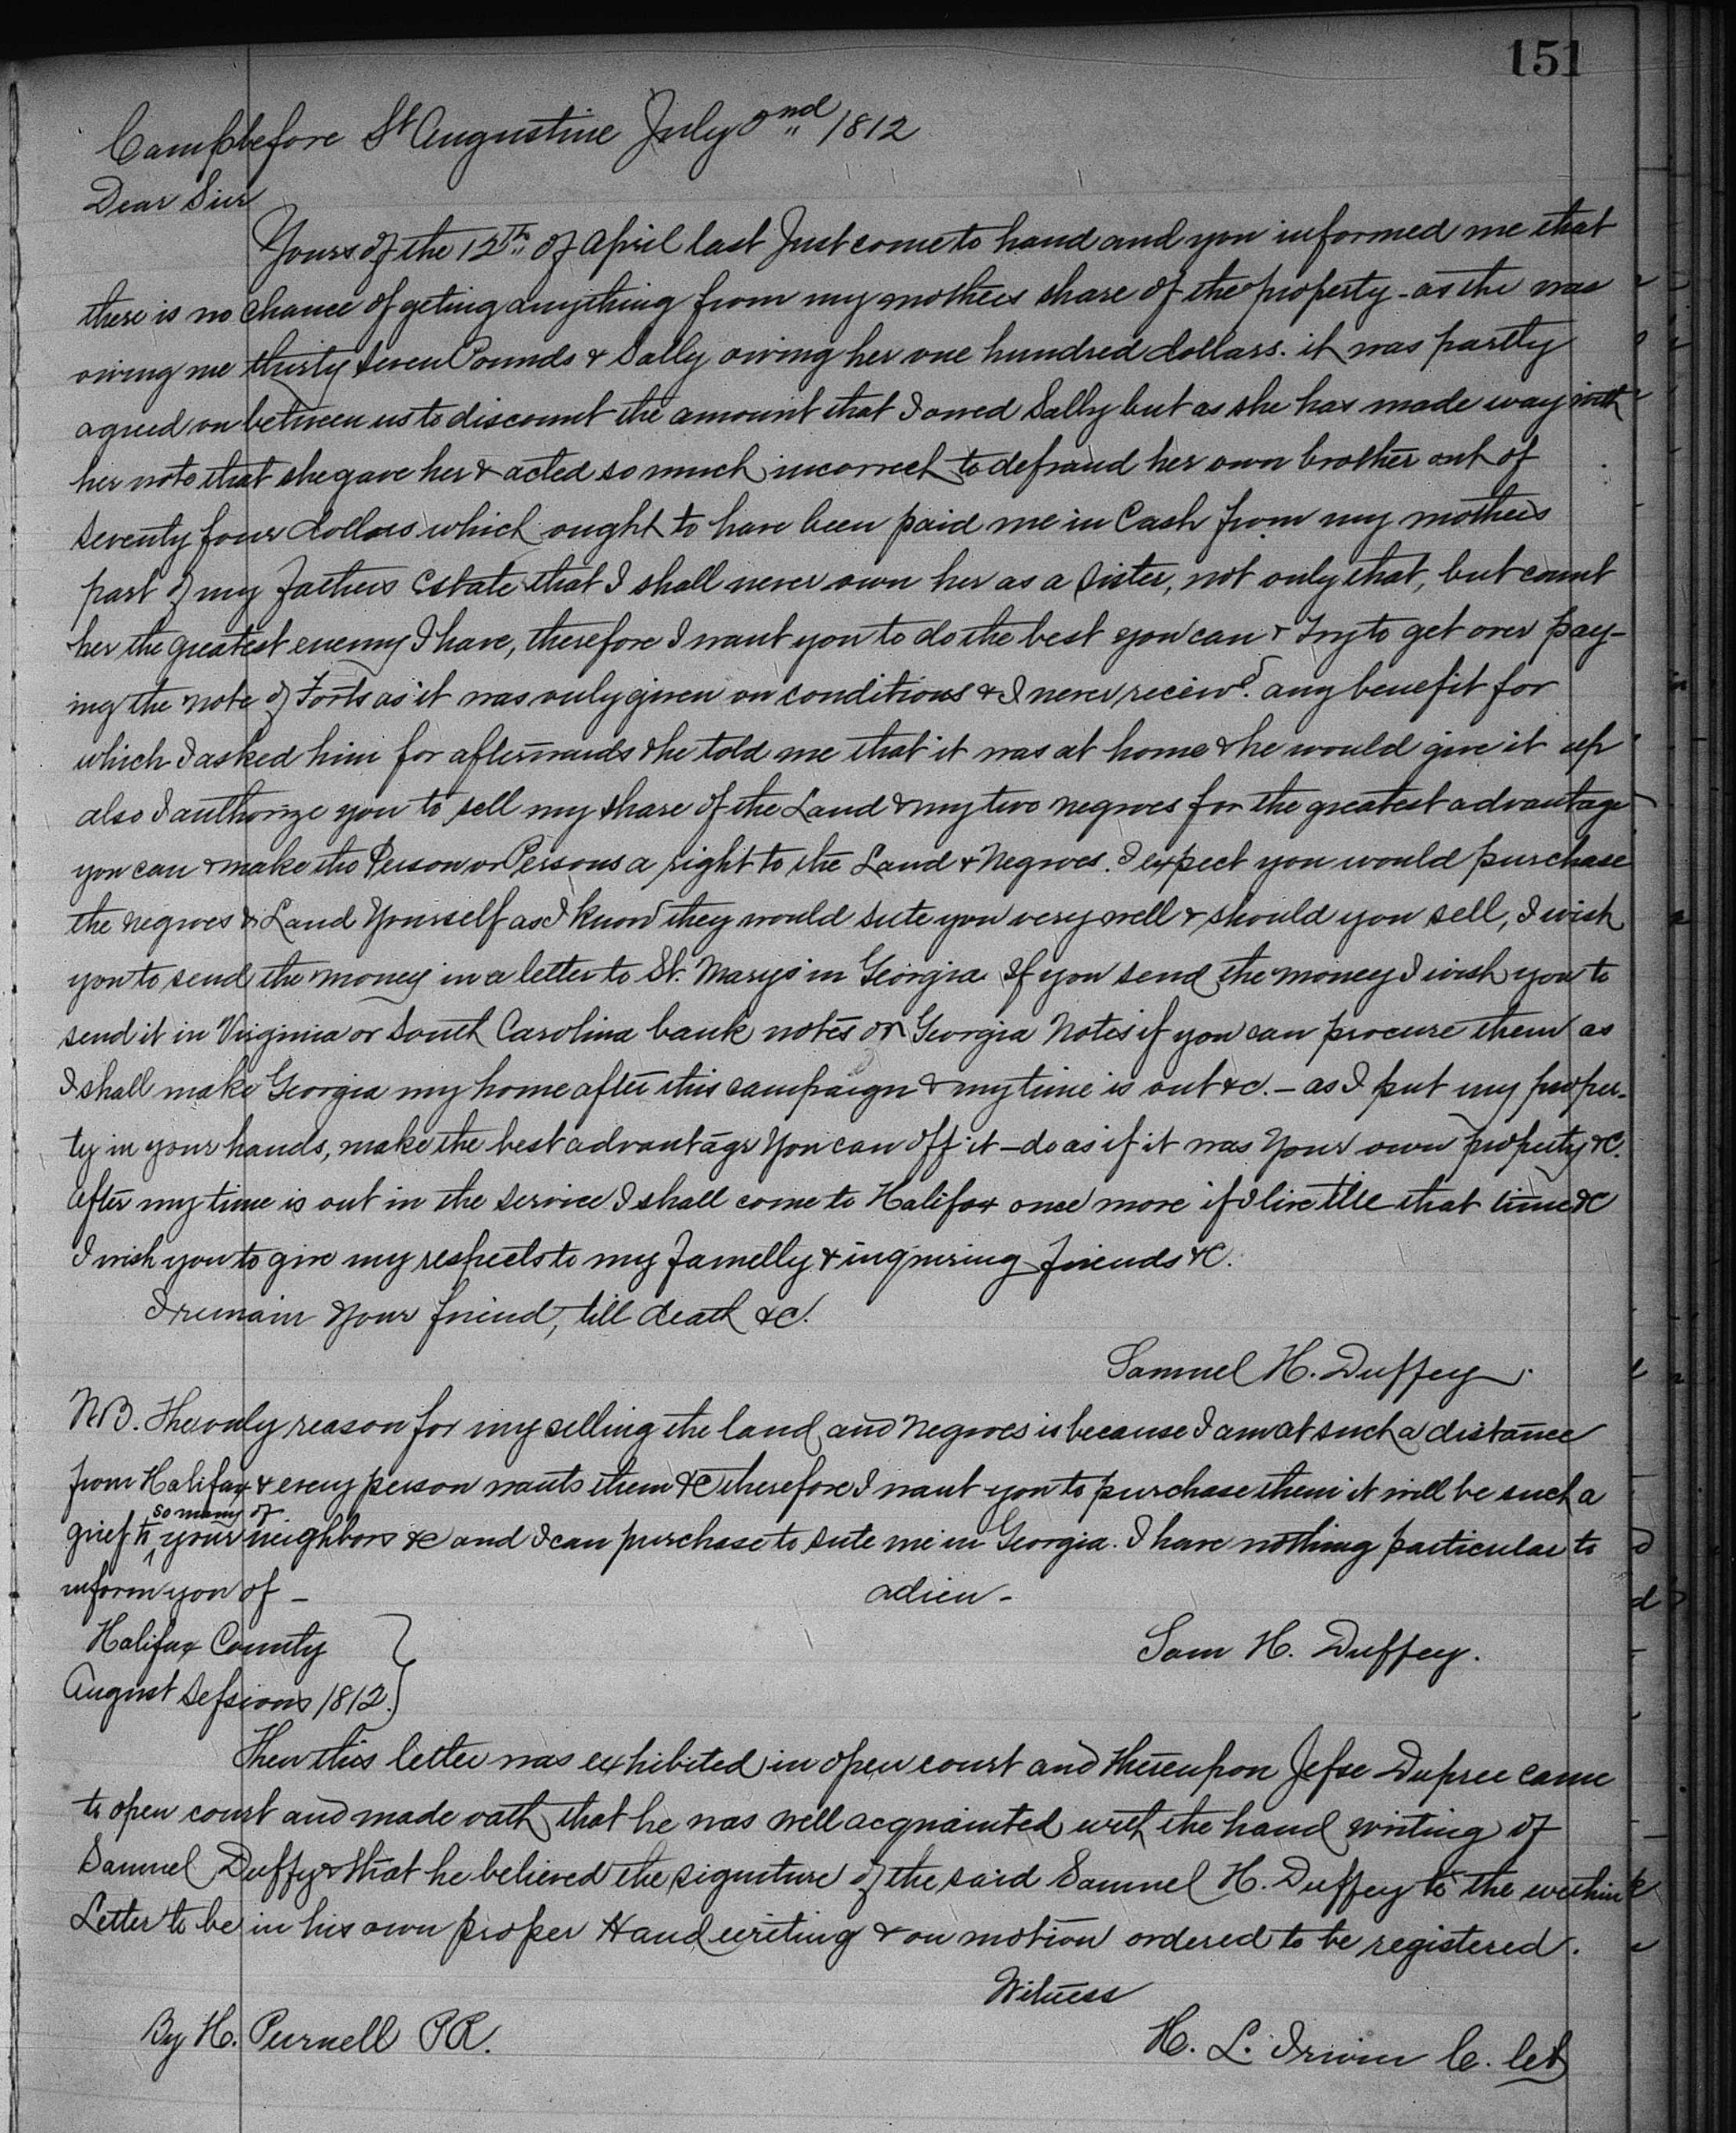 151
Camp before St Augustine July 2nd 1812
Dear Sir
Yours of the 12th of April last Just come to hand and you informed me that
there is no chance of geting anything from my mothers share of the property - as she was
owing me thirty Seven Pounds & Sally owing her one hundred dollars. it was partly
agreed on between us to discount the amount that I owed Sally but as she has made way with
her note that she gave her & acted so much incorrect to defraud her own brother out of
seventy four dollars which ought to have been paid me in Cash from my mothers
part of my Fathers Estate that I shall never own her as a Sister, not only that, but count
her the greatest enemy I have, therefore I want you to do the best you can & Try to get over pay-
ing the note of Forts as it was only given on conditions & I never receivd. any benefit for
which I asked him for afterwards & he told me that it was at home & he would give it up
also I authorize you to sell my share of the Land & my two negroes for the greatest advantage
you can & make the Person or Persons a right to the Land & Negroes. I expect you would purchase
the negroes & Land Yourself as I know they would sute you very well & should you sell, I wish
you to send the money in a letter to St. Marys in Georgia If you send the money I wish you to
send it in Virginia or South Carolina bank notes or Georgia Notes if you can procure them as
I shall make Georgia my home after this campaign & my time is out &c. - as I put my proper-
ty in your hands, make the best advantage You can off it - do as if it was Your own property &C.
after my time is out in the service I shall come to Halifax once more if I live till that time &C
I wish you to give my respects to my Famelly & inquiring friends &C.
I remain Your friend, till death &C.
Samuel H. Duffey.
NB. The only reason for my selling the land and Negroes is because I am at such a distance
from Halifax & every person wants them &C therefore I want you to purchase them it will be such a
so many of
grief to your neighbors &c and I can purchase to sute me in Georgia. I have nothing particular to
inform you of - adieu -
Halifax County
Sam H. Duffey.
August Sessions 1812.
Then this letter was exhibited in open court and thereupon Jesse Dupree came
to open court and made oath that he was well acquainted with the hand writing of
Samuel Duffy & that he believed the signiture of the said Samuel H. Duffey to the within
Letter to be in his own proper Hand writing & on motion ordered to be registered.
Witness
By H. Purnell P.R.
H. L. Irwin C.